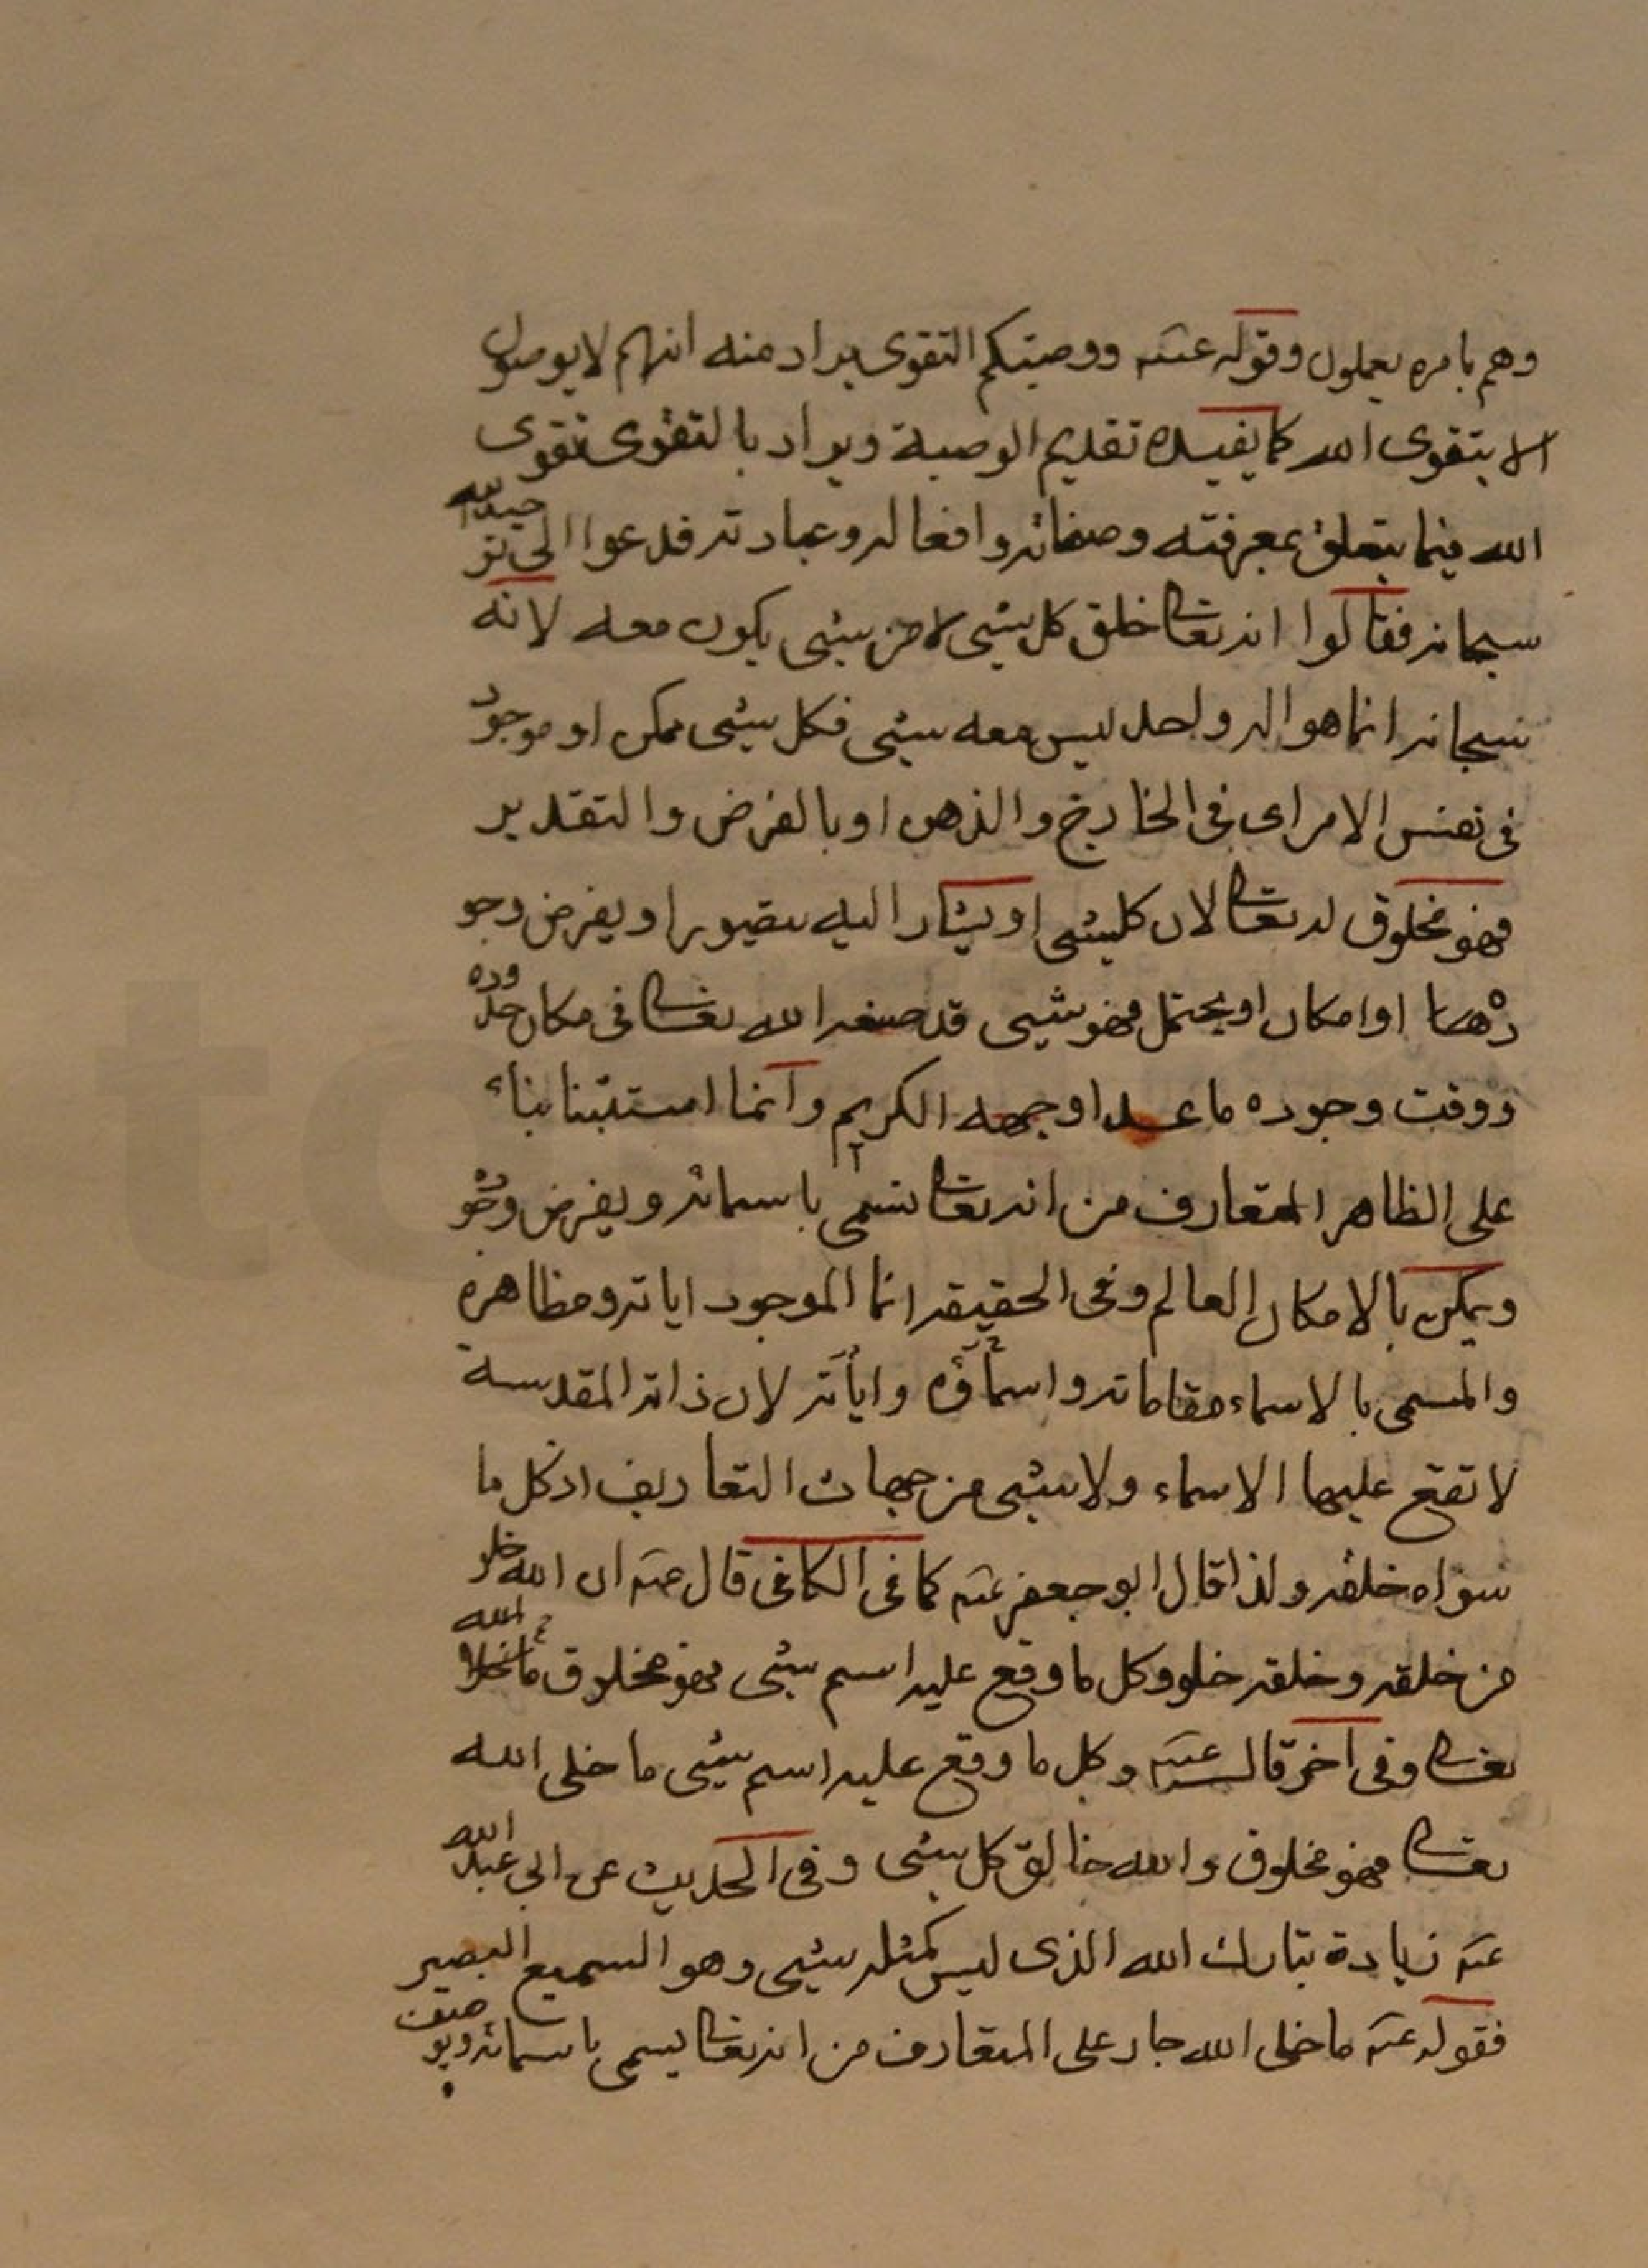 وهم بامره يعملون وقوله عنه ووصيتكم التقوى يراد منه انهم لايوصون
الا بتقوى الله كما يفيده تقديم الوصية ويراد بالتقوى تقوى
الله فيما يتعلق بمعرفته وصفاته وافعاله وعبادته فدعوا الى توحيد الله
سبحانه فقالوا انه تعالى خلق كل شيئ لا من شيئ يكون معه لانه
سبحانه انما هو اله واحد ليس معه شيئ فكل شيئ ممكن او موجود
فى نفس الامر اى فى الخارج والذهن او بالفرض والتقدير
فهو مخلوق له تعالى لان كلشيئ او يشار اليه بتصور او يفرض وجو
دها او امكان او يحتمل فهو شيئ قد صنعه الله تعالى فى مكان حدوده
ووقت وجوده ما عدا وجهه الكريم وانما استثنينا بناء
على الظاهر المتعارف من انه تعالى تسمى باسمائه ويفرض وجو
ويمكن بالامكان العالم وفى الحقيقه انما الموجود اياته ومظاهره
والمسمى بالاسماء مقاماته واسماؤه واياته لان ذاته المقدسة
لا تقع عليها الاسماء ولا شيئ من جهات التعاريف اذ كل ما
سواه خلقه ولذا قال ابو جعفر عنه كما فى الكافى قال عنه ان الله خلو
من خلقه وخلقه خلو وكل ما وقع عليه اسم شيئ فهو مخلوق ما خلا الله
تعالى وفى اخر قال عنه وكل ما وقع عليه اسم شيئ ما خلى الله
تعالى فهو مخلوق والله خالق كل شيئ وفى الحديث عن ابى عبد الله
عنه زيادة تبارك الله الذى ليس كمثله شيئ وهو السميع البصير
فقوله عنه ما خلى الله جار على المتعارف من انه تعالى يسمى باسمائه ويوصف